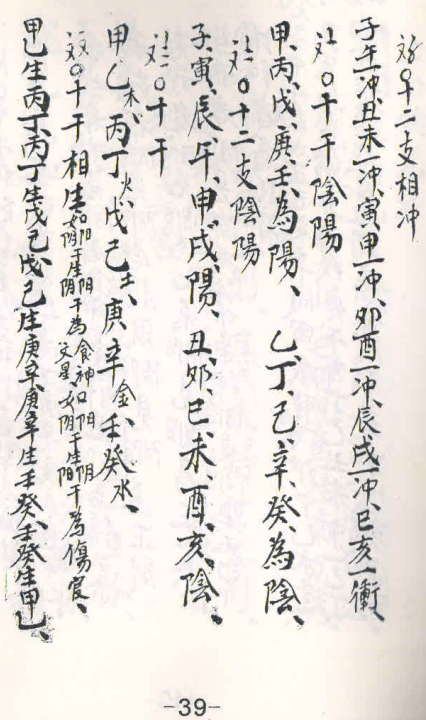 〇十二支相冲
子午一冲、丑未一冲、寅申一冲、卯酉一冲、辰戌一冲、巳亥一衝
〇十干陰陽
甲、丙、戊、庚、壬、為陽、乙、丁、己、辛、癸、為陰、
〇十二支陰陽
子、寅、辰、午、申、戌、陽、丑、卯、巳、未、酉、亥、陰、
〇十干
甲乙木、丙丁火、戊己土、庚辛金、壬癸水、
〇十干相生 為食神 為傷官、
甲乙生丙丁、丙丁生戊己、戊己生庚辛、庚辛生壬癸、壬癸生甲乙、
-39-